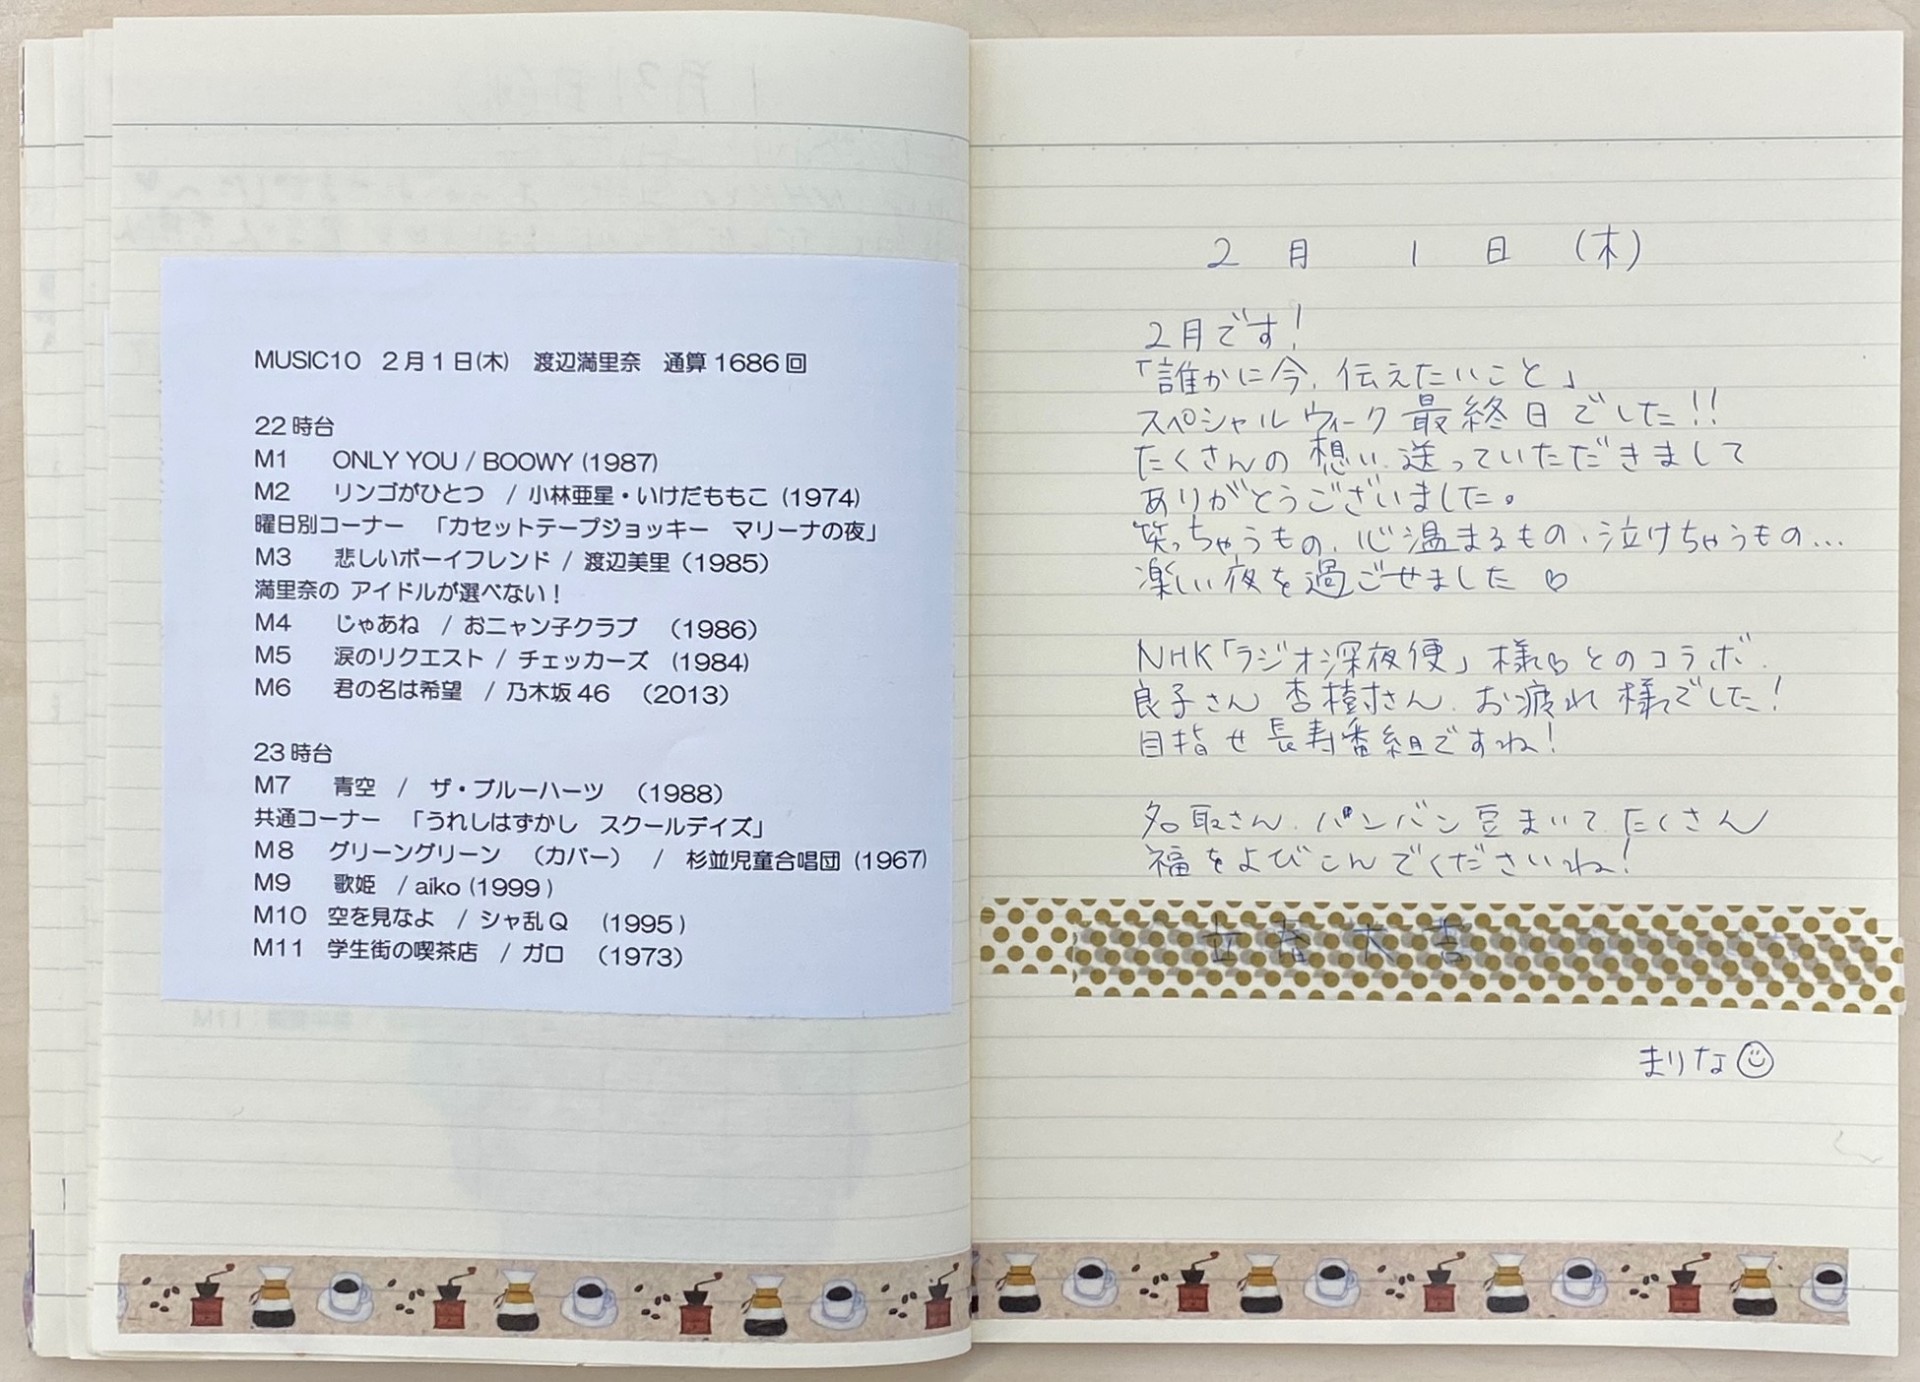 MUSIC10　2月1日(木)　渡辺満里奈　通算1686回
22時台
M1　ONLY YOU / BOOWY (1987)
M2　リンゴがひとつ　/ 小林亜星・いけだももこ（1974）
曜日別コーナー　「カセットテープジョッキー　マリーナの夜」
M3　悲しいボーイフレンド / 渡辺美里（1985）
満里奈の アイドルが選べない！
M4　じゃあね　/ おニャン子クラブ　（1986）
M5　涙のリクエスト / チェッカーズ　（1984）
M6　君の名は希望　/ 乃木坂46　（2013）
23時台
M7　青空　/　ザ・ブルーハーツ　（1988）
共通コーナー　「うれしはずかし　スクールデイズ」
M8　グリーングリーン　（カバー）　/　杉並児童合唱団（1967）
M9　歌姫　/ aiko (1999 )
M10　空を見なよ　/ シャ乱Q　（1995 )
M11　学生街の喫茶店　/ ガロ　（1973）
2月　1日　(木)
2月です!
「誰かに今、伝えたいこと」
スペシャルウィーク 最終日でした!!
たくさんの 想い 送っていただきまして
ありがとうございました。
笑っちゃうもの、心温まるもの、泣けちゃうもの…
楽しい夜を過ごせました♡
NHK「ラジオ深夜便」様♡とのコラボ
良子さん 杏樹さん お疲れ様でした!
目指せ長寿番組ですね!
名取さん、パンパン豆まいて たくさん
福をよびこんでくださいね!
立春大吉
まりな